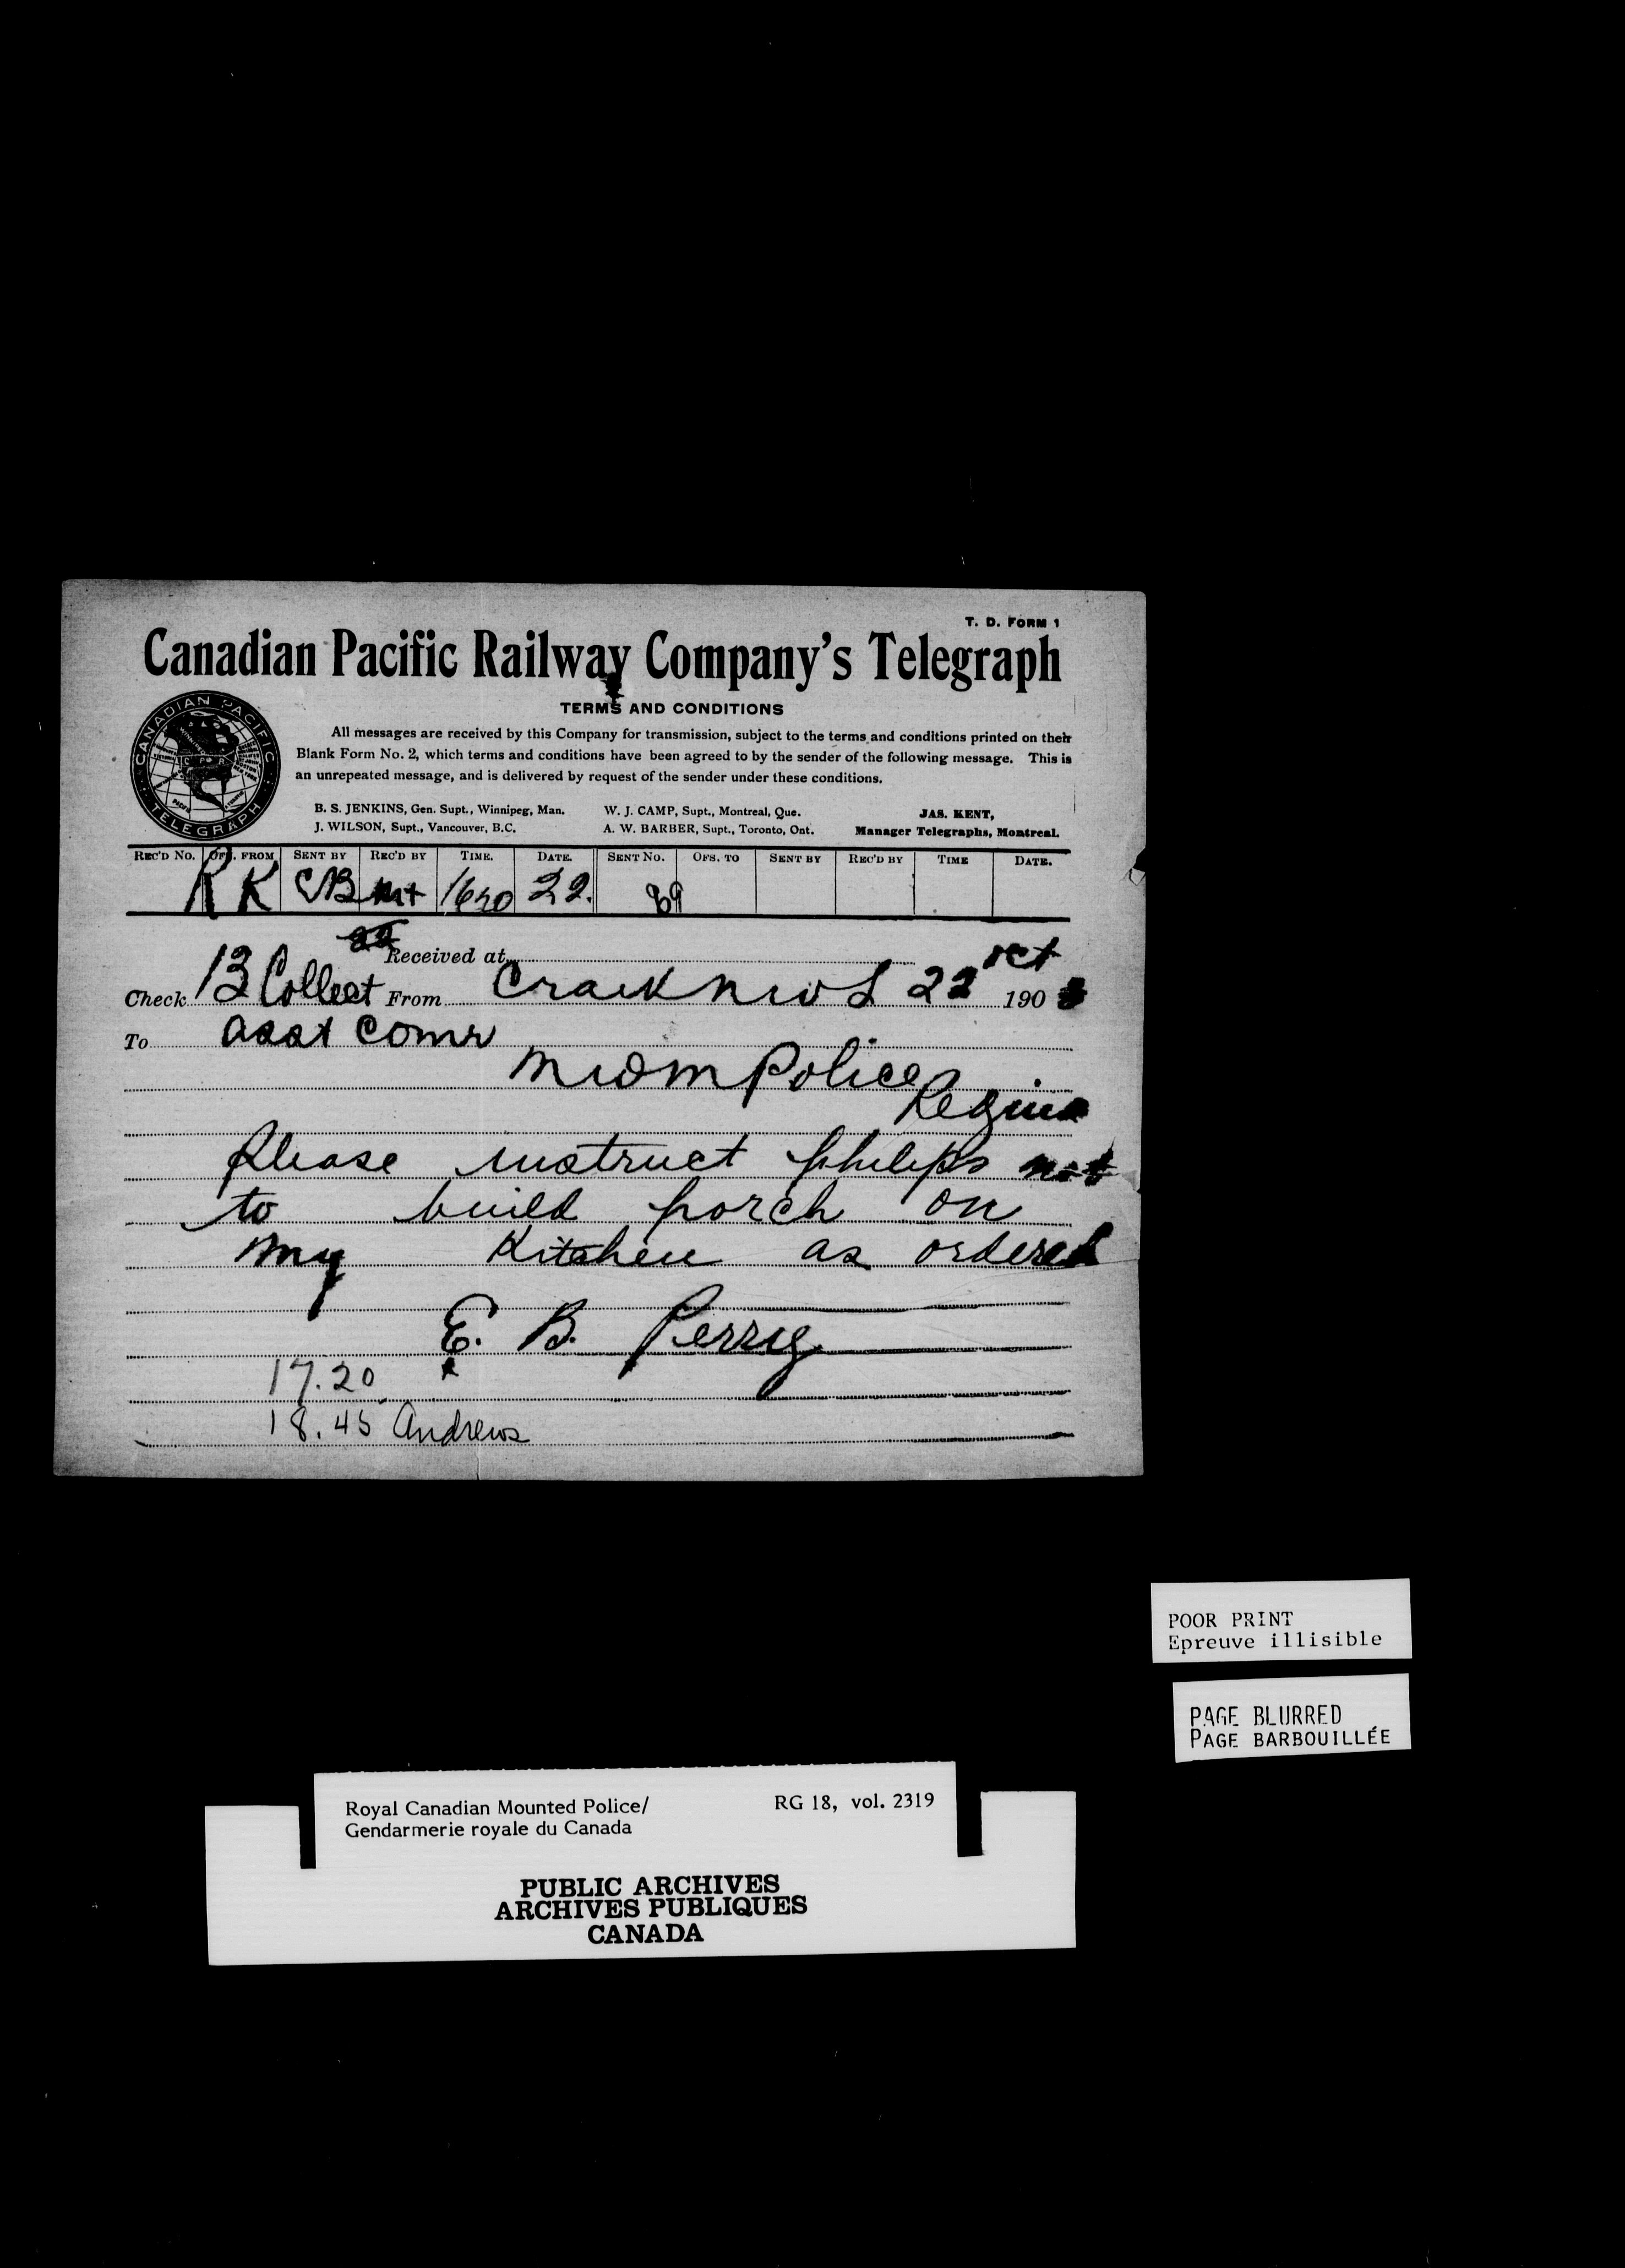 T. D. FORM 1
Canadian Pacific Railway Company's Telegraph
CANADIAN PACIFIC
TELEGRAPH
TERMS AND CONDITIONS
All messages are received by this Company for transmission, subject to the terms and conditions printed on their
Blank Form No. 2, which terms and conditions have been agreed to by the sender of the following message. This is
an unrepeated message, and is delivered by request of the sender under these conditions.
B. S. JENKINS, Gen. Supt., Winnipeg, Man. W. J. CAMP, Supt., Montreal, Que. JAS. KENT,
J. WILSON, Supt., Vancouver, B.C. A. W. BARBER, Supt., Toronto, Ont. Manager Telegraphs, Montreal.
REC'D NO. OFS. FROM SENT BY REC'D BY TIME. DATE. SENT NO. OFS. TO SENT BY REC'D BY TIME DATE.
RK CB 22. 89
Received at
Check 13 Collect From Craik nwt 22 oct 190
To asst Comr
nwm police
Regina
Please instruct philips not
to build porch on
my Kitchen as ordered
E. B. Perry
17.20
18.45 Andrews
POOR PRINT
Epreuve illisible
PAGE BLURRED
PAGE BARBOUILLÉE
Royal Canadian Mounted Police/ RG 18, vol. 2319
Gendarmerie royale du Canada
PUBLIC ARCHIVES
ARCHIVES PUBLIQUES
CANADA